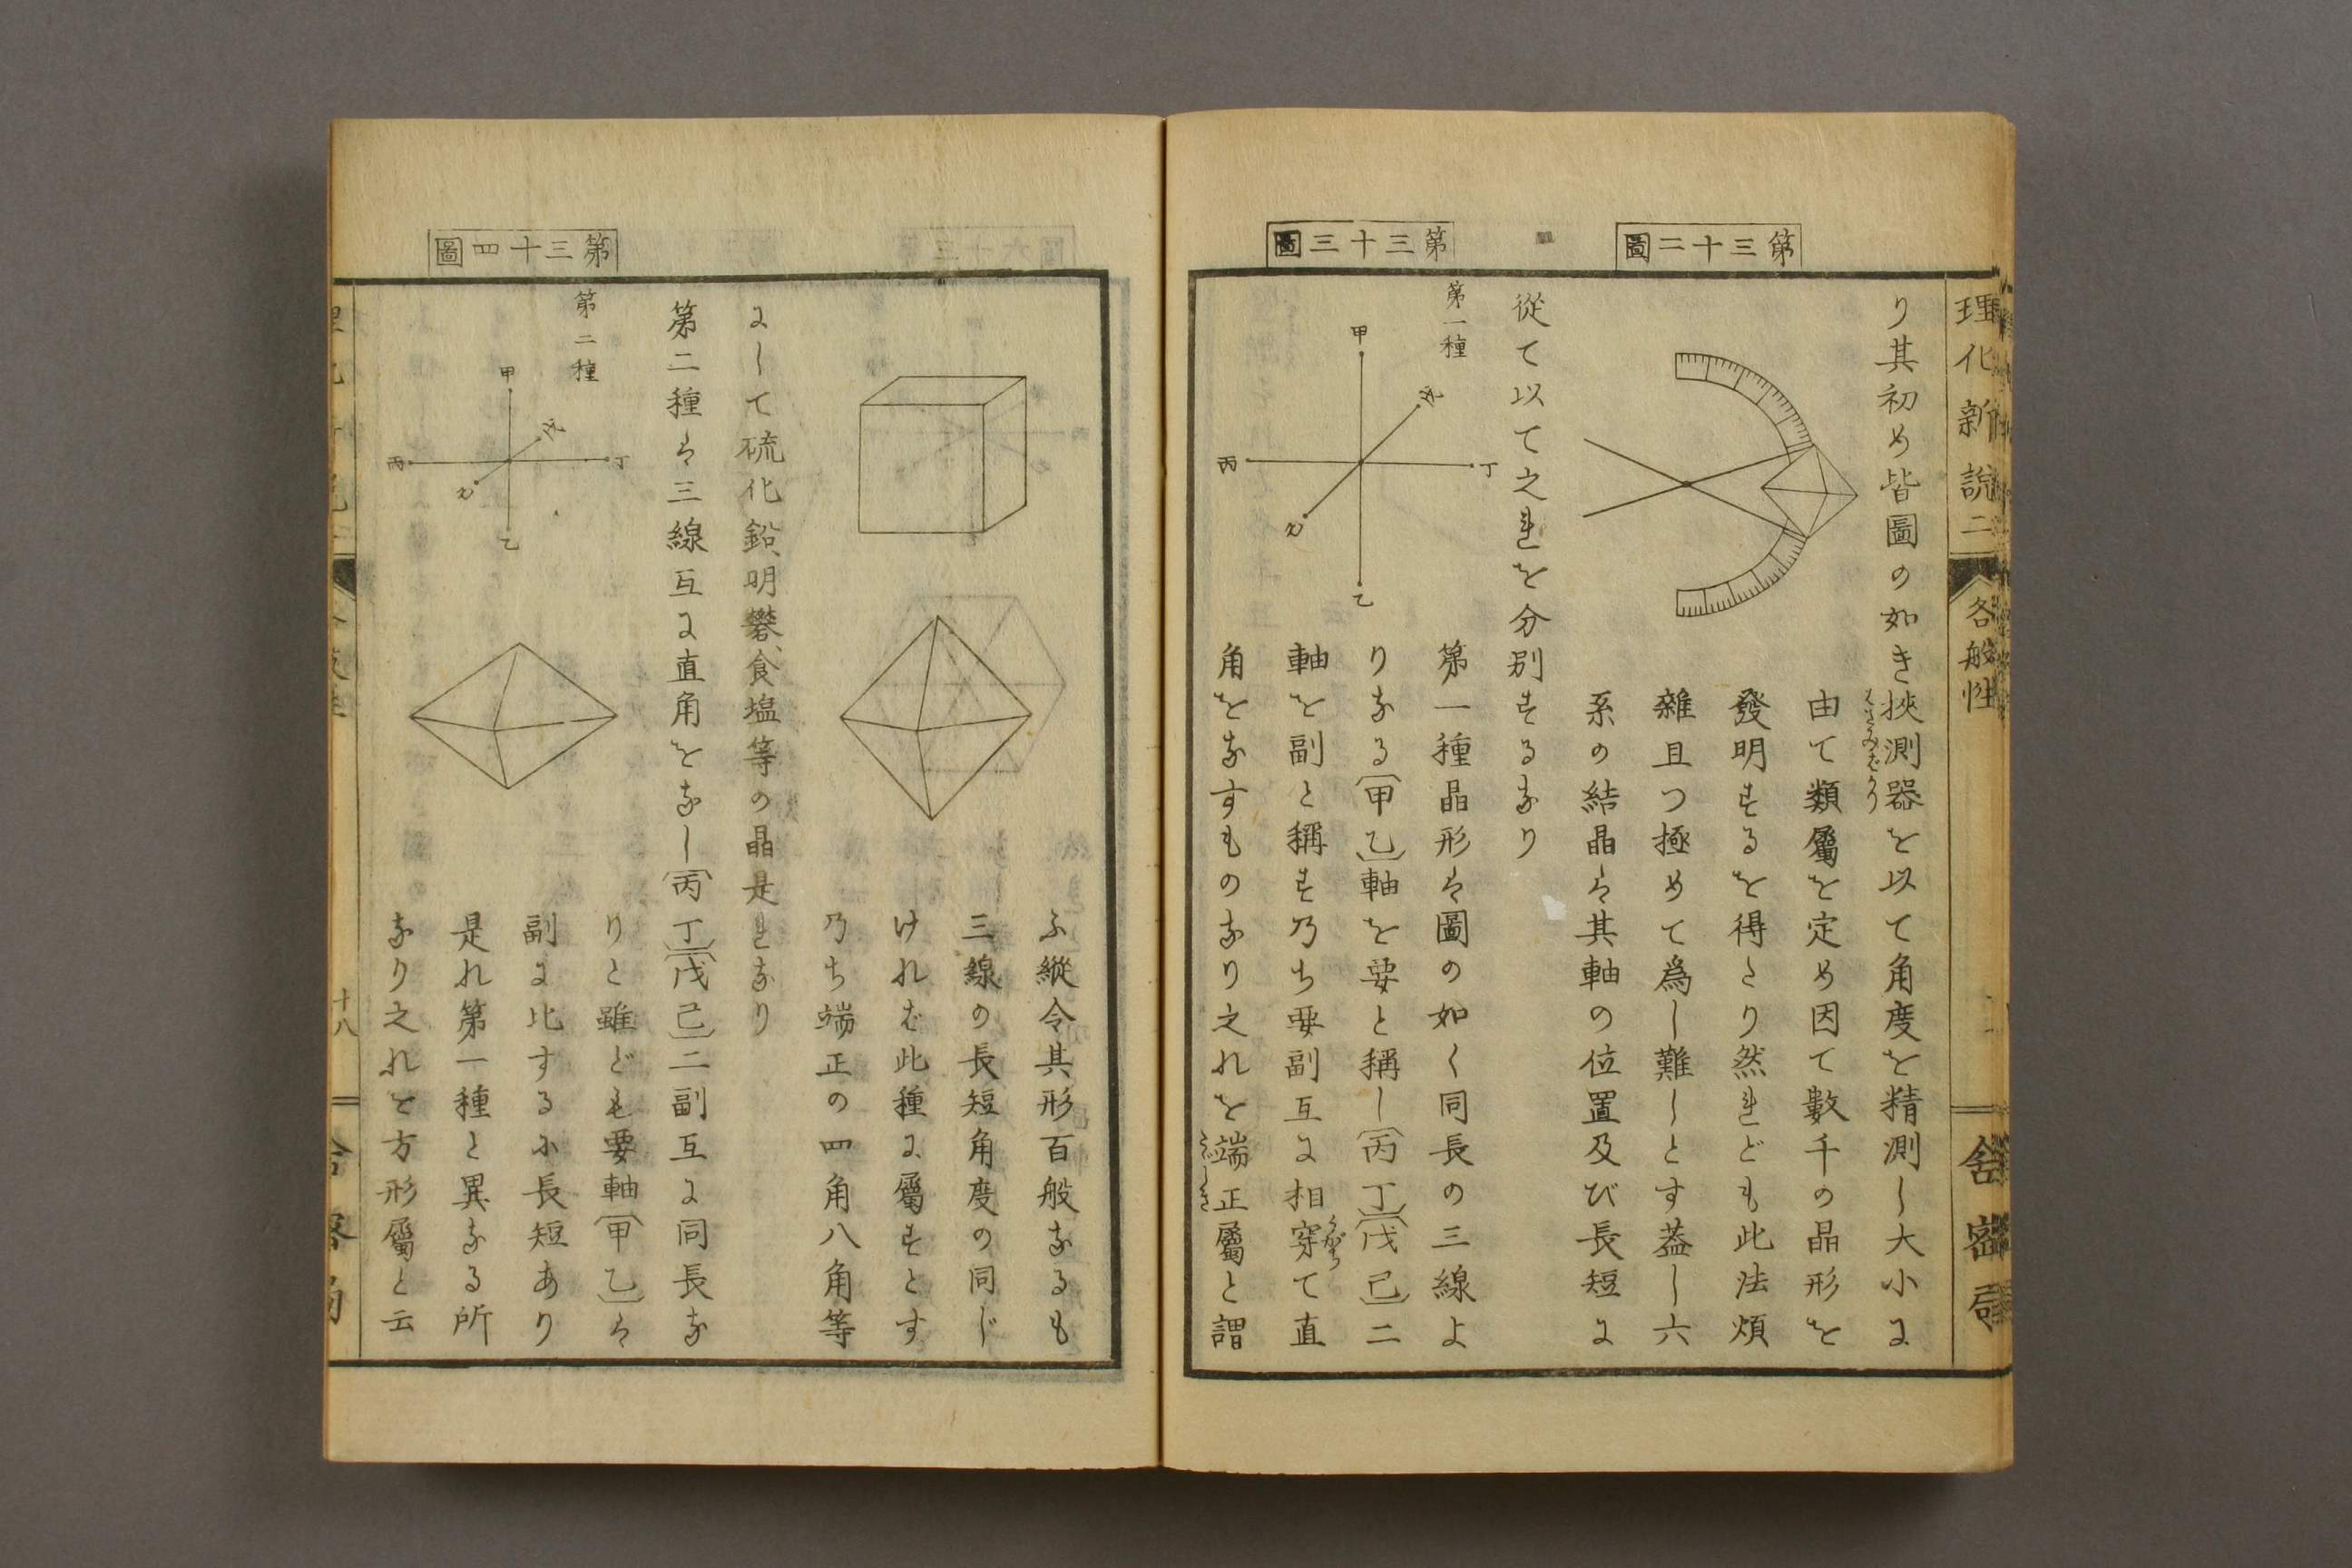 理化新説二
各般性
舎密局
第三十二圖
り其初め皆圖の如き挾測器を以て角度を精測し大小に
はさみばかり
由て類屬を定め因て數千の晶形を
發明するを得たり然れども此法煩
雜且つ極めて爲し難しとす蓋し六
系の結晶は其軸の位置及び長短に
從て以て之れを分別するなり
第三十三圖
第一種
甲
戊
丙
丁
己
乙
第一種晶形は圖の如く同長の三線よ
りなる(甲乙)軸を要と稱し(丙丁)(戊己)二
軸を副と稱す乃ち要副互に相穿て直
うがつ
角をなすものなり之れを端正屬と謂
ふ縱令其形百般なるも
三線の長短角度の同じ
ければ此種に屬すとす
乃ち端正の四角八角等
にして硫化鉛、明礬、食塩等の晶是れなり
第二種は三線互に直角をなし(丙丁)(戊己)二副互に同長な
第三十四圖
第二種
甲
戊
丙
丁
己
乙
りと雖ども要軸(甲乙)は
副に比するに長短あり
是れ第一種と異なる所
なり之れを方形屬と云
十八